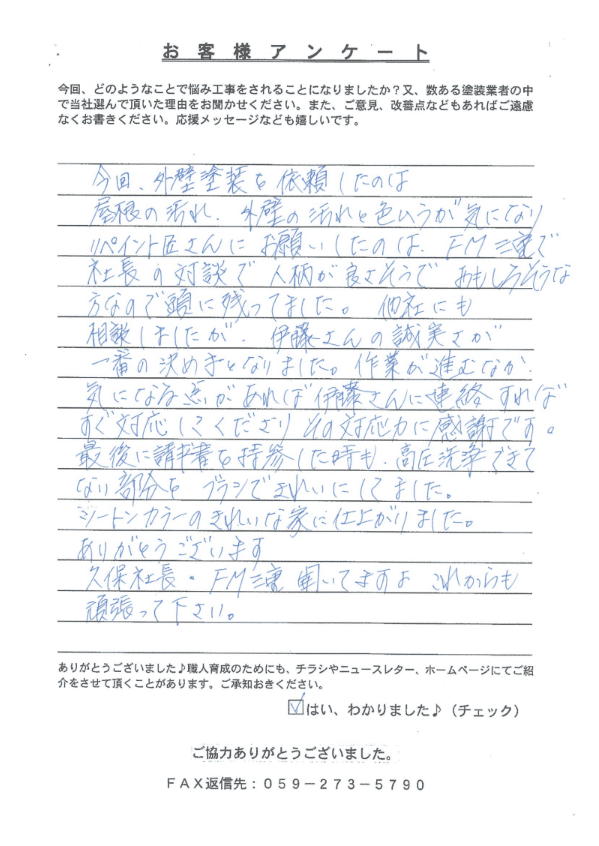 お客様アンケート
今回、どのようなことで悩み工事をされることになりましたか？又、数ある塗装業者の中
で当社選んで頂いた理由をお聞かせください。また、ご意見、改善点などもあればご遠慮
なくお書きください。応援メッセージなども嬉しいです。
今回、外壁塗装を依頼したのは
屋根の汚れ、外壁の汚れと色ムラが気になり
リペイント匠さんにお願いしたのは、FM三重で
社長の対談で人柄が良さそうで おもしろそうな
方なので頭に残ってました。 他社にも
相談しましたが、伊藤さんの誠実さが
一番の決めきとなりました。作業が進むなか、
気になる点があれば伊藤さんに連絡すれば
すぐ対応してくださり その対応力に感謝です。
最後に請求書を持参した時も、高圧洗浄できて
ない部分を ブラシできれいにしてました。
ツートンカラーのきれいな家に仕上がりました。
ありがとうございます
久保社長・FM三重 聞いてますよ これからも
頑張って下さい。
ありがとうございました♪職人育成のためにも、チラシやニュースレター、ホームページにてご紹
介をさせて頂くことがあります。ご承知おきください。
☑はい、わかりました♪（チェック）
ご協力ありがとうございました。
FAX返信先：059－273－5790